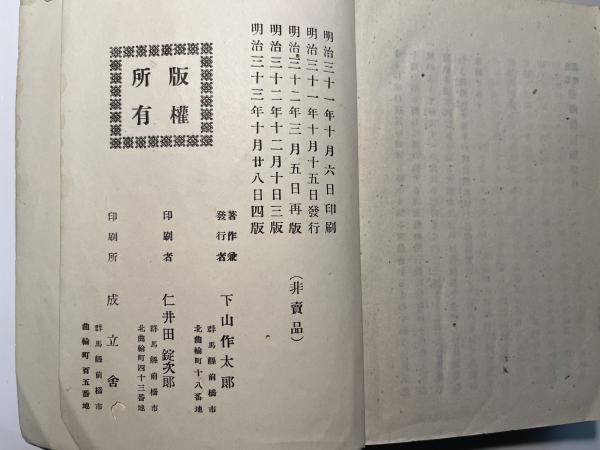 明治三十一年十月六日印刷
明治三十一年十月十五日發行
明治三十二年三月五日再版
明治三十二年十二月十日三版
明治三十三年十月廿八日四版
（非賣品）
版權
所有
著作兼
發行者
下山作太郎
群馬縣前橋市
北曲輪町十八番地
印刷者
仁井田錠次郎
群馬縣前橋市
北曲輪町四十三番地
印刷所
成立舍
群馬縣前橋市
曲輪町百五番地